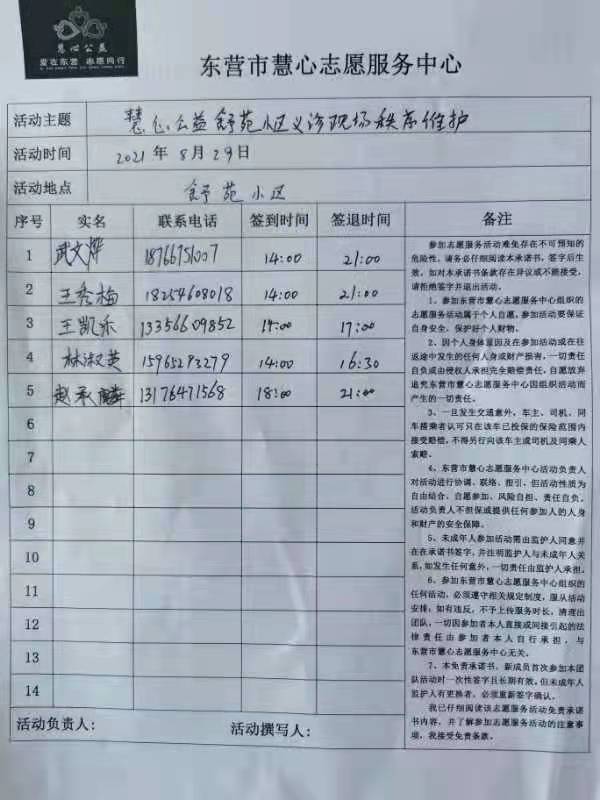 慧心公益
爱在东营 志愿同行
东营市慧心志愿服务中心
活动主题 慧心公益舒苑小区义诊现场秩序维护
活动时间 2021年8月29日
活动地点 舒苑小区
序号 实名 联系电话 签到时间 签退时间 备注
1 武文烨 18766751007 14:00 21:00
2 王秀梅 18254608018 14:00 21:00
3 王凯乐 13356609852 14:00 17:00
4 林淑英 15965293279 14:00 16:30
5 赵承麟 13176471568 18:00 21:00
6
7
8
9
10
11
12
13
14
参加志愿服务活动难免存在不可预知的
危险性，请务必仔细阅读本承诺书，签字后生
效，如对本承诺书条款存在异议或不能接受，
请拒绝签字并退出活动。
1、参加东营市慧心志愿服务中心组织的
志愿服务活动属于个人自愿，参加活动要保证
自身安全，保护好个人财物。
2、因个人身体原因及在参加活动或在往
返途中发生的任何人身或财产损害，一切责任
自负或由侵权人承担完全赔偿责任，自愿放弃
追究东营市慧心志愿服务中心因组织活动而
产生的一切责任。
3、一旦发生交通意外，车主、司机、同
车搭乘者认可只在该车已投保的保险范围内
接受赔偿，不得另行向该车主或司机及同乘人
索赔。
4、东营市慧心志愿服务中心活动负责人
对活动进行协调、联络、指引，但活动性质为
自由结合、自愿参加、风险自担、责任自负。
活动负责人不担保或提供任何参加人的人身
和财产的安全保障。
5、未成年人参加活动需由监护人同意并
在在承诺书签字，并注明监护人与未成年人关
系，如发生任何意外，一切责任由监护人承担。
6、参加东营市慧心志愿服务中心组织的
任何活动，必须遵守相关规定制度，服从活动
安排；如有违反，不予上传服务时长，清理出
团队，一切因参加者本人直接或间接引起的法
律责任由参加者本人自行承担，与
东营市慧心志愿服务中心无关。
7、本免责承诺书，新成员首次参加本团
队活动时一次性签字且长期有效，但未成年人
监护人有更换者，必须重新签字确认。
我已仔细阅读该志愿服务活动免责承诺
书内容，并了解参加志愿服务活动的注意事
项，我接受免责条款。
活动负责人： 活动撰写人：